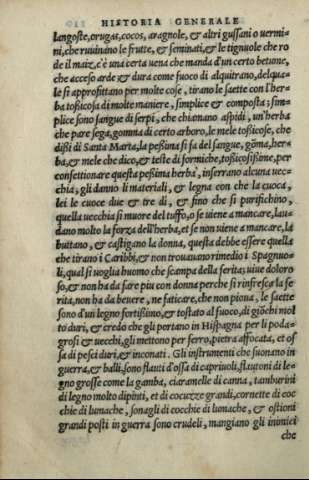 HISTORIA GENERALE
langoste, orugas, cocos, aragnole, & altri gussani o uermi-
ni, che ruuinano le frutte, & seminati, & le tignuole che ro
de il maiz, c'è una certa uena che manda d'un certo betune,
che acceso arde & dura come fuoco di alquitrano, delqua-
le si approfittano per molte cose, tirano le saette con l'her-
ba tossicosa di molte maniere, simplice & composta; sim-
plice sono sangue di serpi, che chiamano aspidi, un'herba
che pare sega, gomma di certo arboro, le mele tossicose, che
dissi di Santa Marta, la pessima si fa del sangue, gõma, her-
ba, & mele che dico, & teste di formiche, tossicosissime, per
confettionare questa pessima herba, inserrano alcuna uec-
chia, gli danno li materiali, & legna con che la cuoca,
lei le cuoce due & tre dì, & fino che si purifichino,
quella uecchia si muore del tuffo, o se uiene a mancare, lau-
dano molto la forza dell'herba, et se non uiene a mancare, la
buttano, & castigano la donna, questa debbe essere quella
che tirano i Caribbi, & non trouauano rimedio i Spagnuo-
li, qual si uoglia huomo che scampa della ferita; uiue doloro
so, & non ha da fare piu con donna perche si rinfresca la fe
rita, non ha da beuere, ne faticare, che non pioua, le saette
sono d'un legno fortissimo, & tostato al fuoco, di giõchi mol
to duri, & credo che gli portano in Hispagna per li poda-
grosi & uecchi, gli mettono per ferro, pietra affocata, et os
sa di pesci duri, & inconati. Gli instrumenti che suonano in
guerra, & balli, sono flauti d'ossa di capriuoli, flautoni di le-
gno grosse come la gamba, ciaramelle di canna, tamburini
di legno molto dipinti, et di cocuzze grandi, cornette di coc
chie di lumache, sonagli di cocchie di lumache, & ostioni
grandi posti in guerra sono crudeli, mangiano gli inimici
che